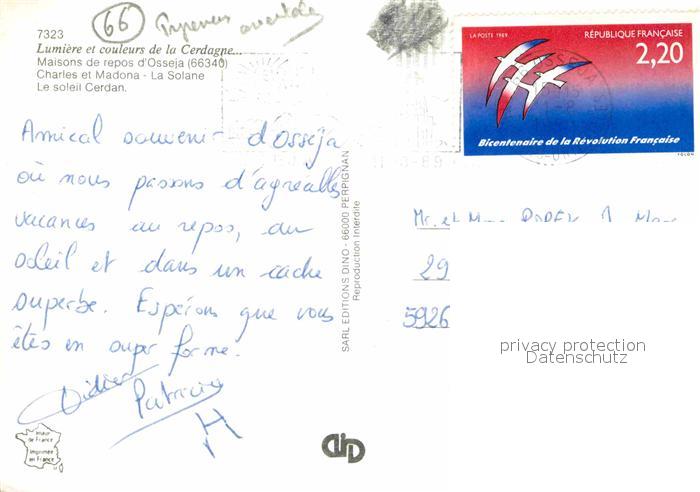 66 Pyrénées orientales
7323
Lumière et couleurs de la Cerdagne...
Maisons de repos d'Osseja (66340)
Charles et Madona - La Solane
Le soleil Cerdan.
Amical souvenir d'Osséja
où nous passons d'agréables
vacances au repos, au
soleil et dans un cadre
superbe. Espérons que vous
êtes en super forme.
Didier
Patricia
H
Imaur
de France
Imprimée
en France
SARL EDITIONS DINO - 66000 PERPIGNAN
Reproduction Interdite
LA POSTE 1989
RÉPUBLIQUE FRANÇAISE
2,20
Bicentenaire de la Révolution Française
FOLON
OSSEJA
-8-89
Mr. et M
29
5926
privacy protection
Datenschutz